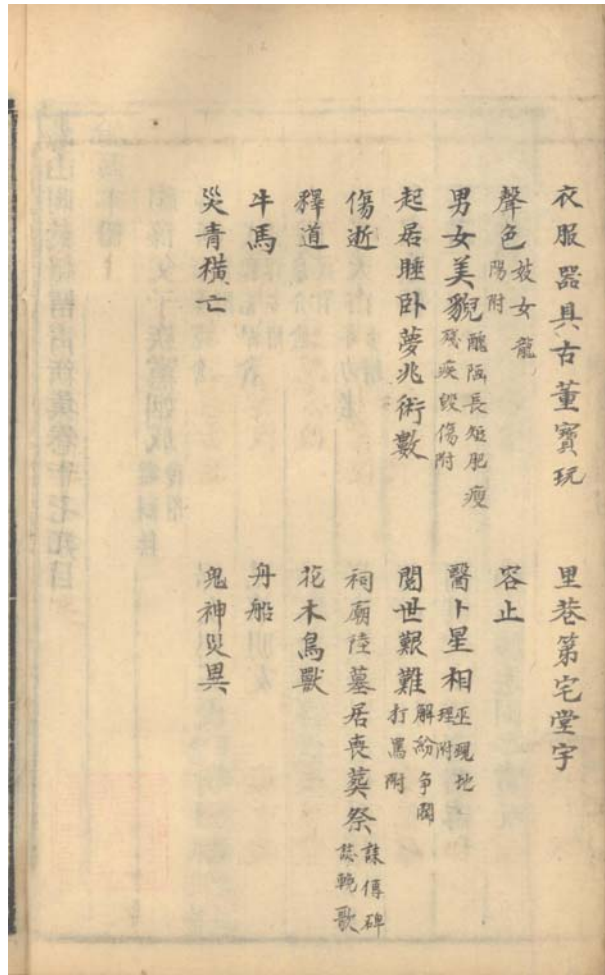 衣服器具古董寳玩　里巷第宅堂宇
聲色妓女龍陽附　容止
男女美貌醜陋長短肥瘦殘疾毀傷附　醫卜星相巫覡地理附
起居睡卧夢兆術數　閱世艱難解紛争鬪打罵附
傷逝　祠廟陸墓居喪葬祭誄傳碑誌輓歌
釋道　花木鳥獸
牛馬　舟船
災青横亡　鬼神災異